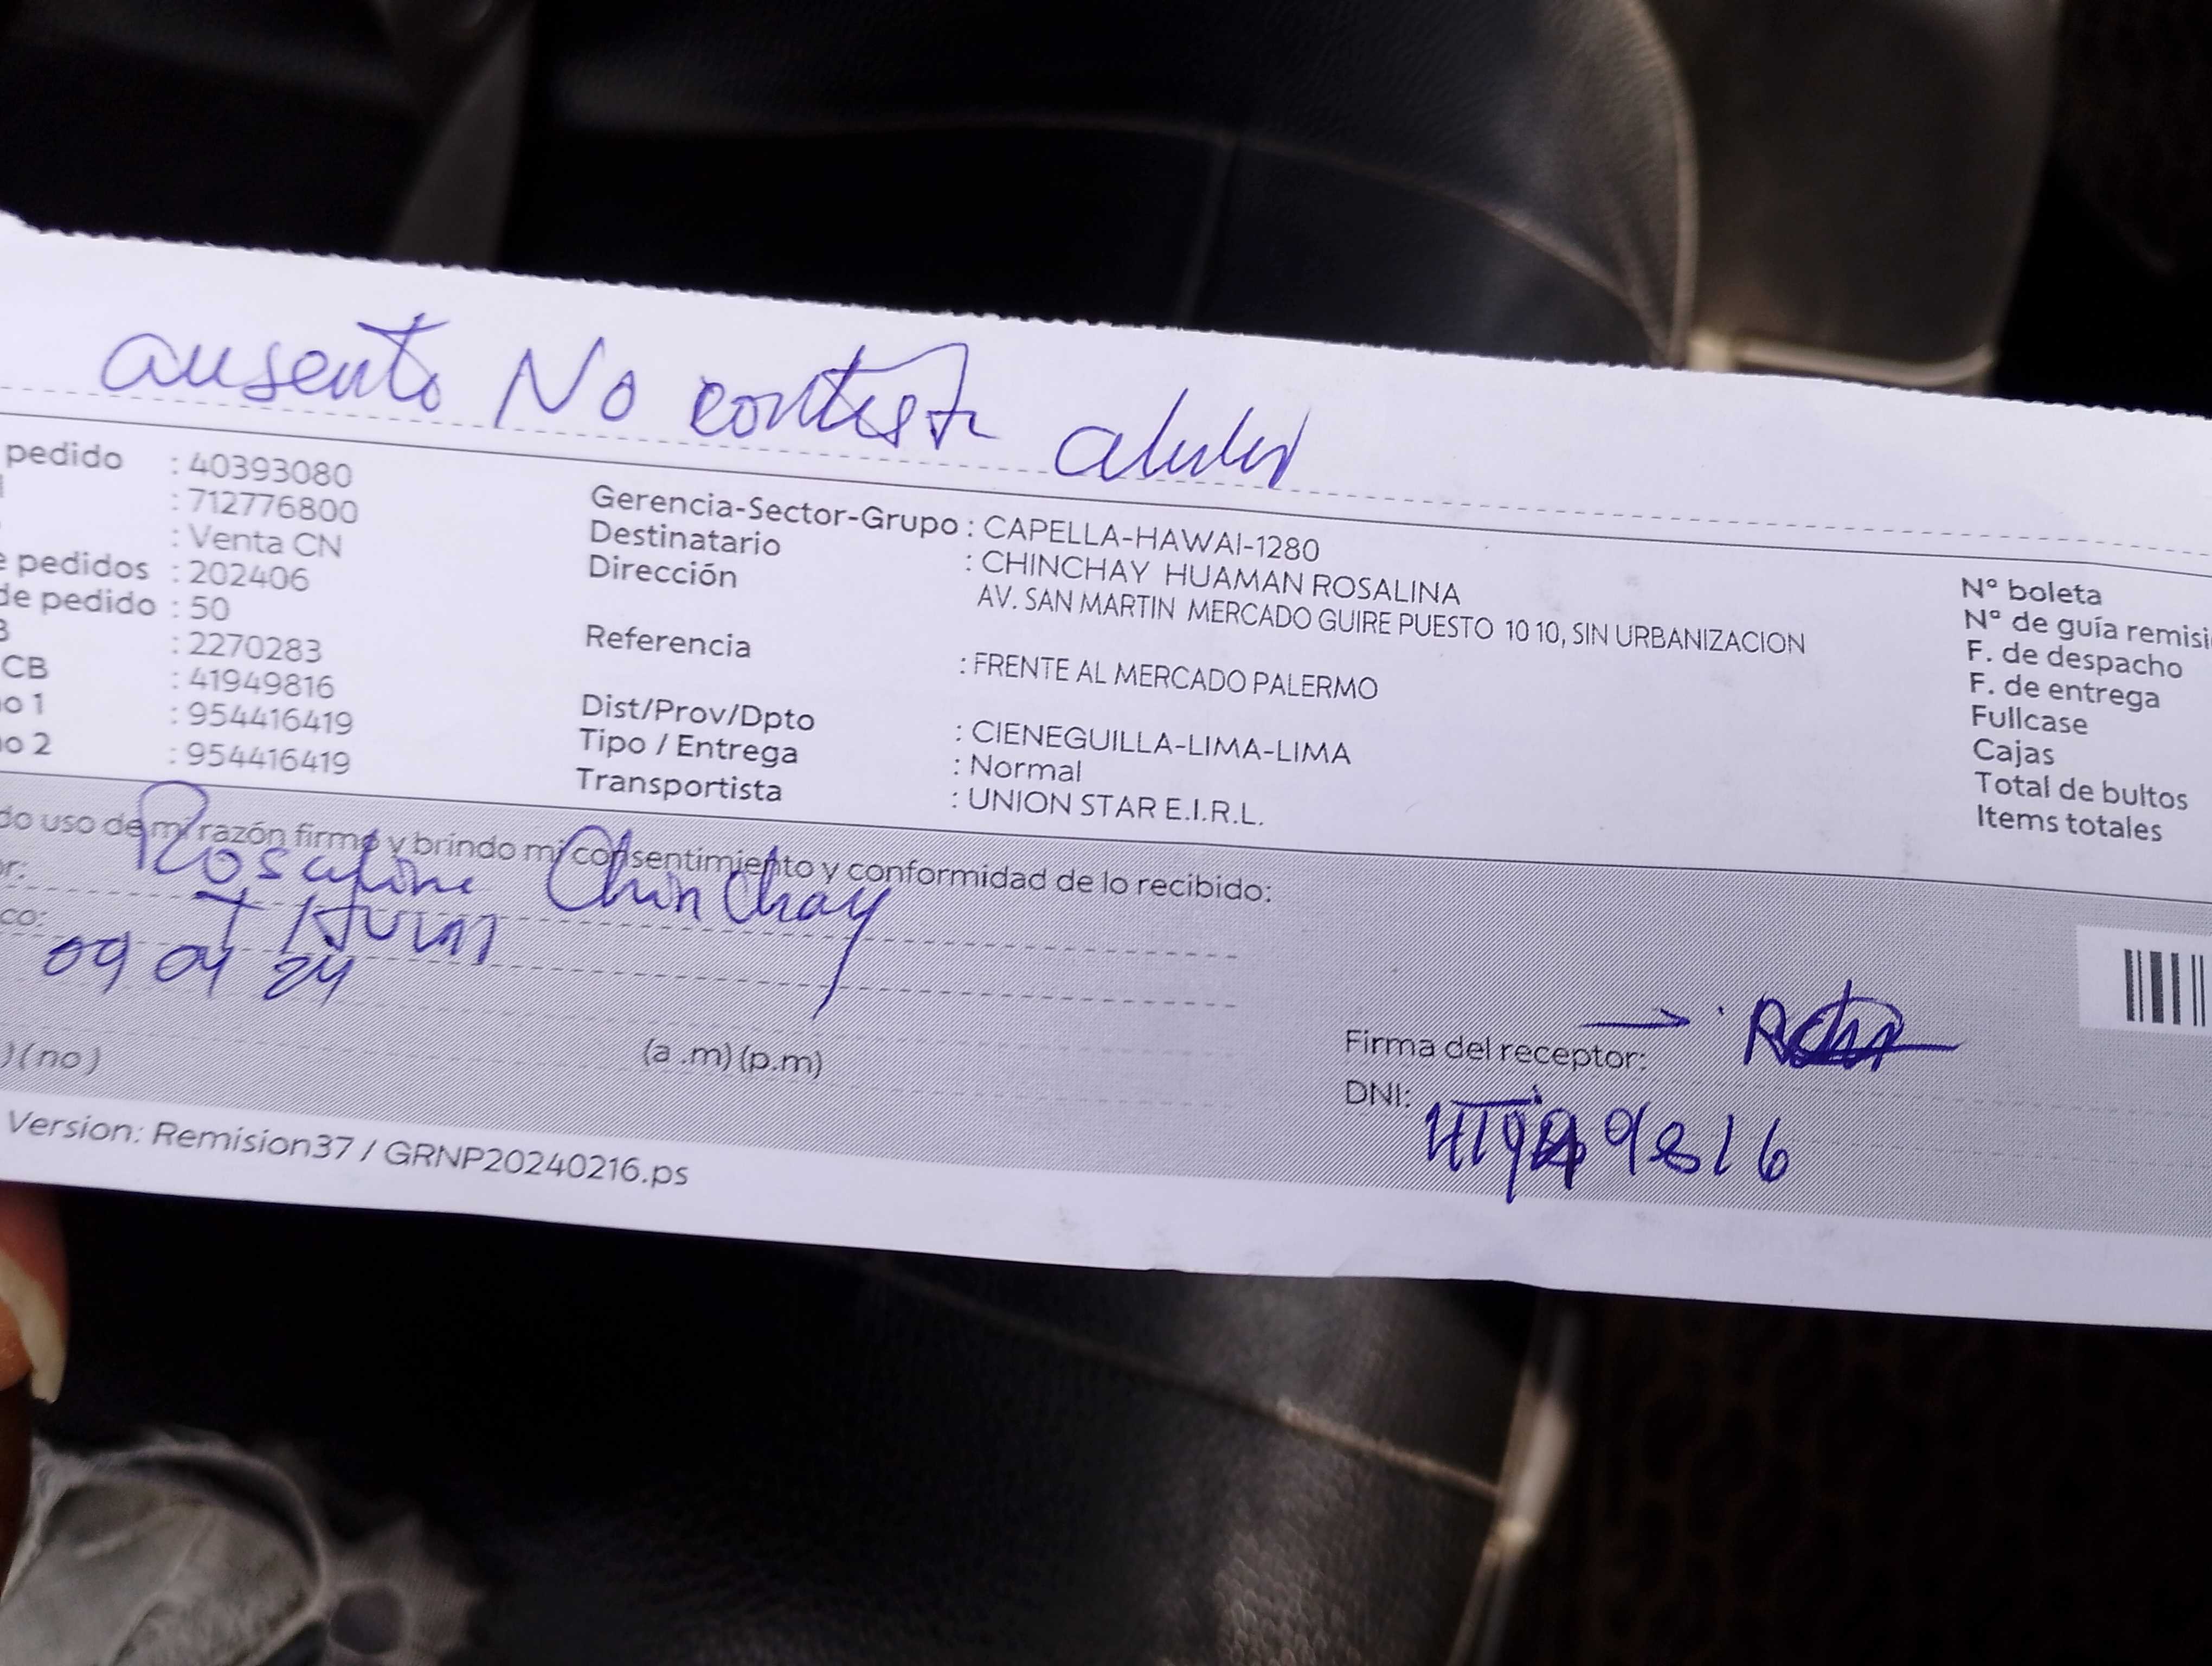 ausente No contesta celular
pedido : 40393080
: 712776800
: Venta CN
e pedidos : 202406
de pedido : 50
: 2270283
CB : 41949816
no 1 : 954416419
no 2 : 954416419
Gerencia-Sector-Grupo : CAPELLA-HAWAI-1280
Destinatario : CHINCHAY HUAMAN ROSALINA
Dirección AV. SAN MARTIN MERCADO GUIRE PUESTO 10 10, SIN URBANIZACION
Referencia : FRENTE AL MERCADO PALERMO
Dist/Prov/Dpto : CIENEGUILLA-LIMA-LIMA
Tipo / Entrega : Normal
Transportista : UNION STAR E.I.R.L.
N° boleta
N° de guía remisi
F. de despacho
F. de entrega
Fullcase
Cajas
Total de bultos
Items totales
do uso de mi razón firmo y brindo mi consentimiento y conformidad de lo recibido:
or: Rosalina Chinchay
co:
09 04 24
) (no) (a .m) (p.m)
Firma del receptor:
DNI: 41949816
Version: Remision37 / GRNP20240216.ps